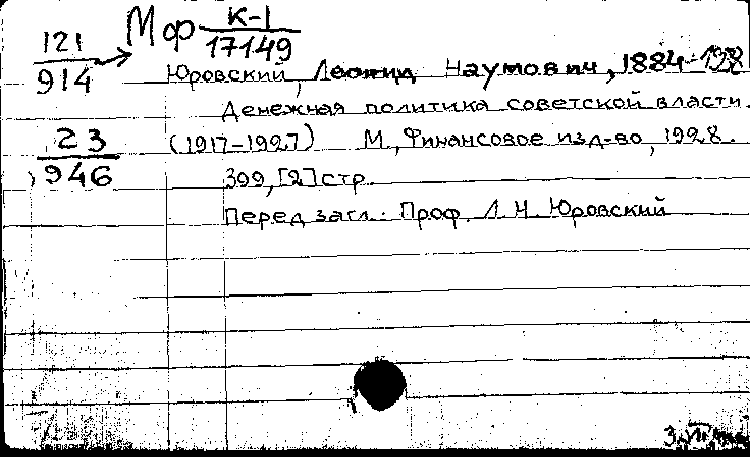 121
914
Мф К-1
17149
Юровский, Леонид Наумович, 1884-
Денежная политика советской власти.
(1917-1927) М., Финансовое изд-во, 1928.
23
946
399, [2] стр.
Перед загл.: Проф. Л. Н. Юровский